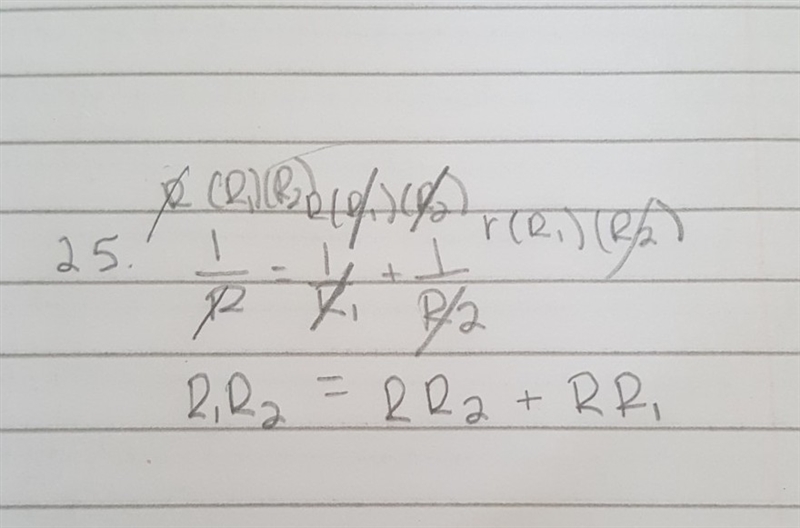 R (R₁)(R₂) R(R₁)(R₂) r(R₁)(R₂)
25. 1/R = 1/R₁ + 1/R₂
R₁R₂ = RR₂ + RR₁